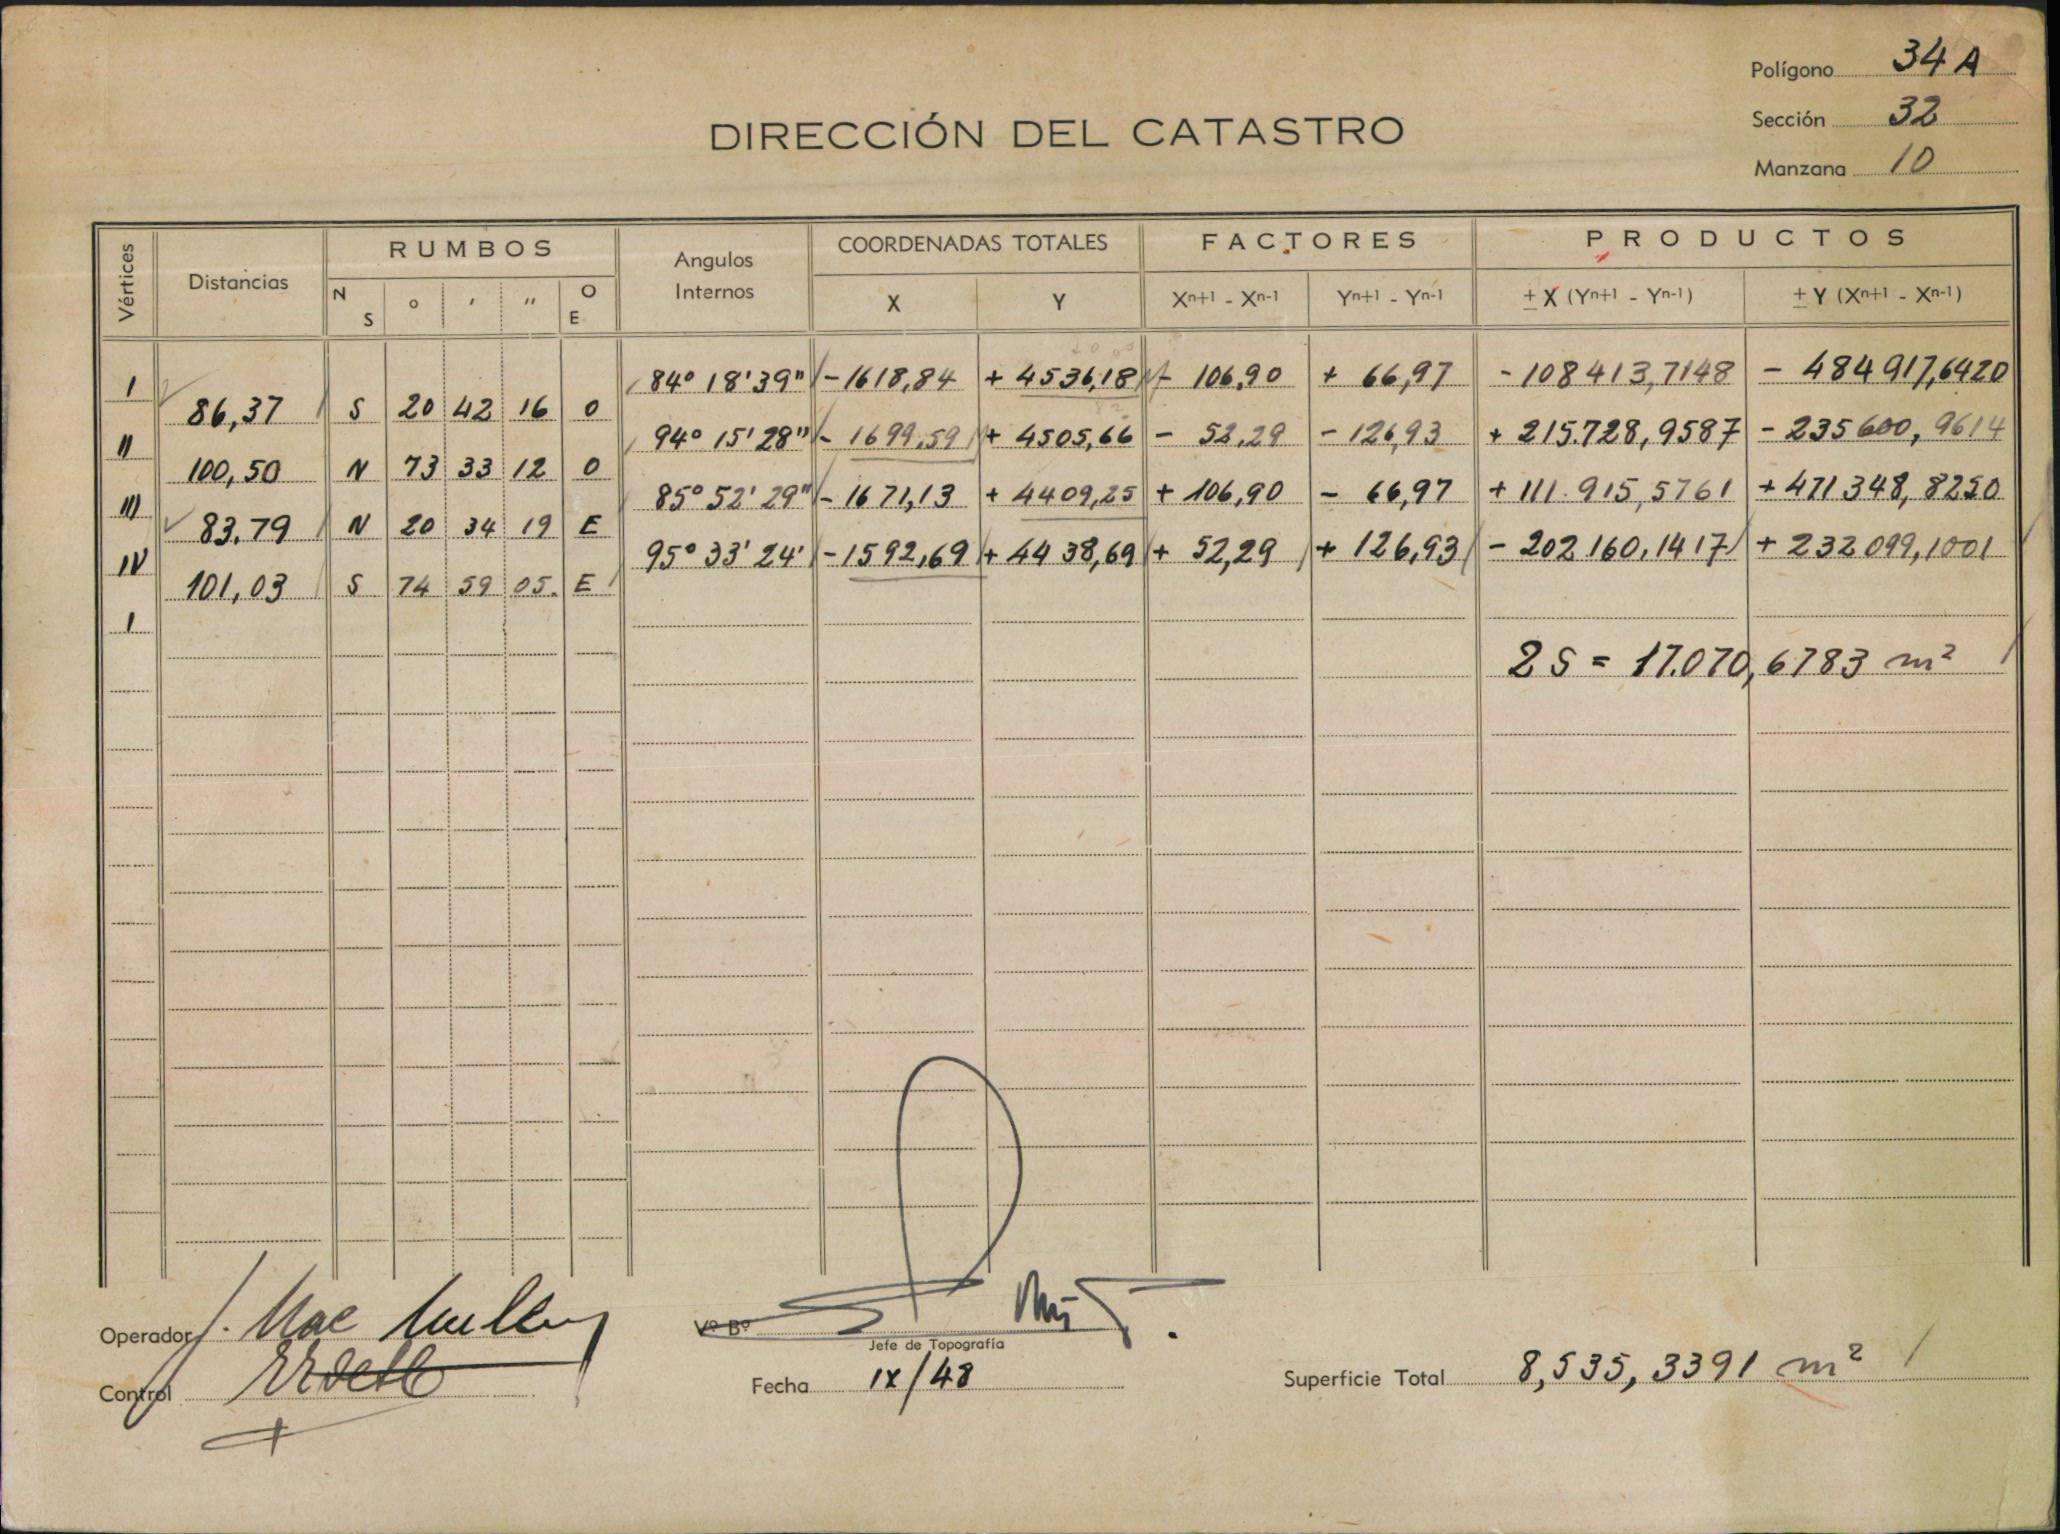 Polígono 34 A
Sección 32
Manzana 10
DIRECCIÓN DEL CATASTRO
Vértices Distancias RUMBOS Angulos Internos COORDENADAS TOTALES FACTORES PRODUCTOS
N S ° ' " O E X Y Xⁿ⁺¹ - Xⁿ⁻¹ Yⁿ⁺¹ - Yⁿ⁻¹ ± X (Yⁿ⁺¹ - Yⁿ⁻¹) ± Y (Xⁿ⁺¹ - Xⁿ⁻¹)
I 84° 18' 39" - 1618,84 + 4536,18 - 106,90 + 66,97 - 108413,7148 - 484917,6420
86,37 S 20 42 16 O
II 94° 15' 28" - 1699,59 + 4505,66 - 52,29 - 126,93 + 215.728,9587 - 235600,9614
100,50 N 73 33 12 O
III 85° 52' 29" - 1671,13 + 4409,25 + 106,90 - 66,97 + 111.915,5761 + 471348,8250
83,79 N 20 34 19 E
IV 95° 33' 24' - 1592,69 + 4438,69 + 52,29 + 126,93 - 202160,1417 + 232099,1001
101,03 S 74 59 05. E
I
2 S = 17.070,6783 m²
Operador J. Mac
Vº Bº
Jefe de Topografía
Control
Fecha IX/48
Superficie Total 8,535,3391 m²